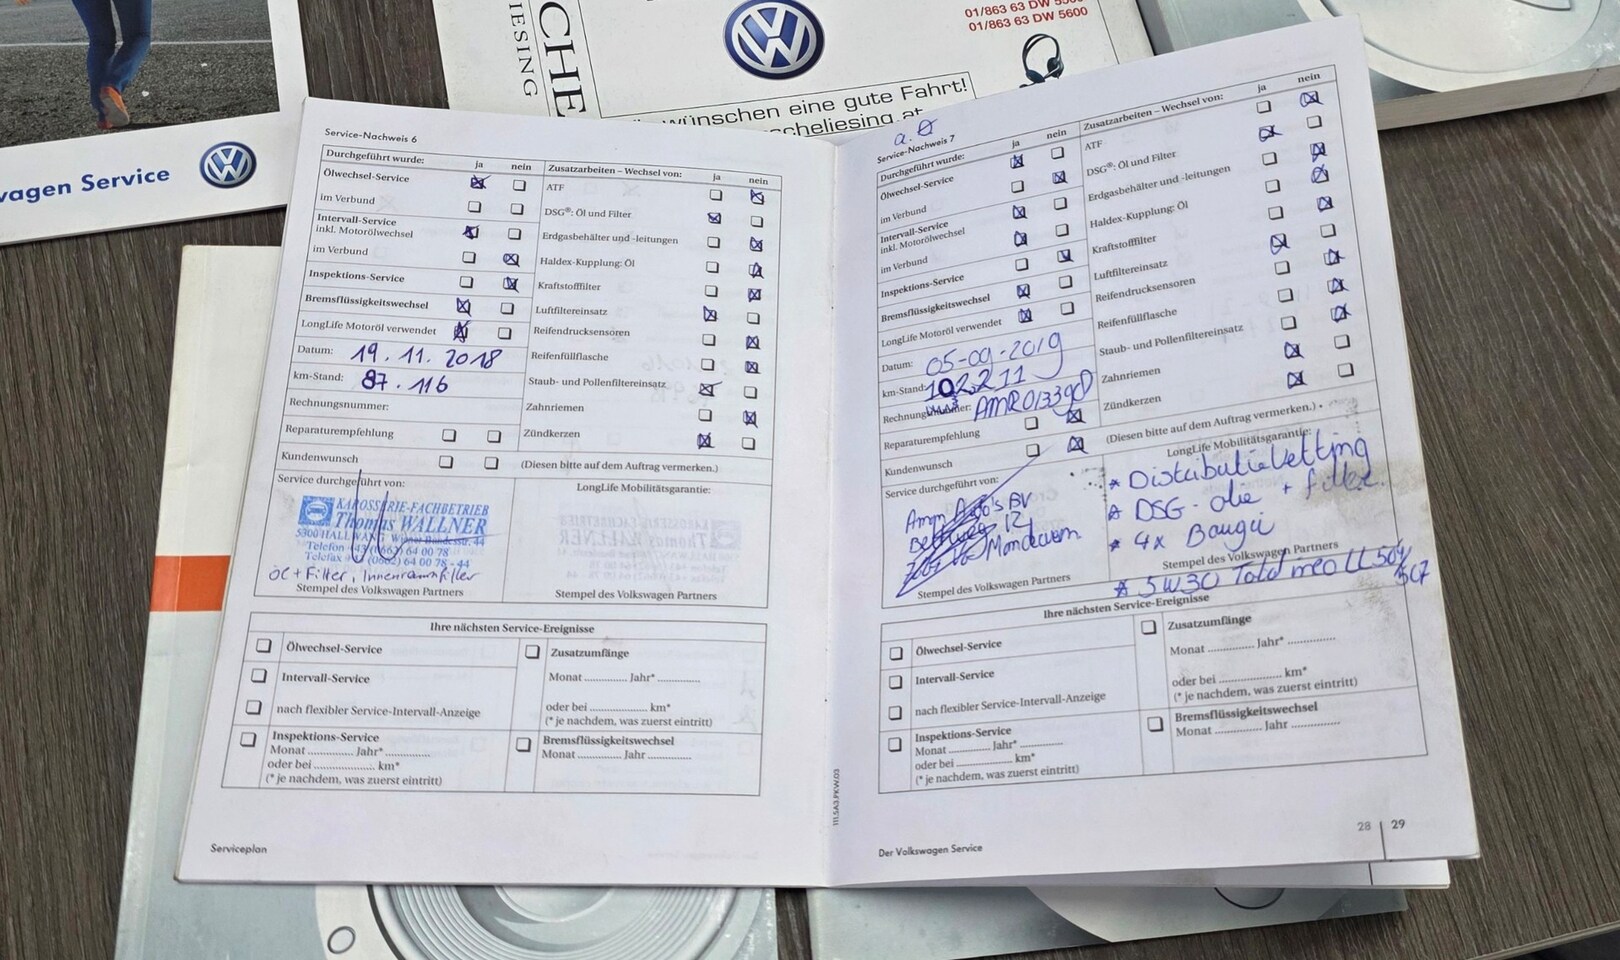 CHE
IESING
01/863 63 DW 5600
wünschen eine gute Fahrt!
scheliesing.at
wagen Service
Service-Nachweis 6
Durchgeführt wurde: ja nein
Ölwechsel-Service
im Verbund
Intervall-Service
inkl. Motorölwechsel
im Verbund
Inspektions-Service
Bremsflüssigkeitswechsel
LongLife Motoröl verwendet
Datum: 19.11.2018
km-Stand: 87.116
Rechnungsnummer:
Reparaturempfehlung
Kundenwunsch
Zusatzarbeiten – Wechsel von: ja nein
ATF
DSG®: Öl und Filter
Erdgasbehälter und -leitungen
Haldex-Kupplung: Öl
Kraftstofffilter
Luftfiltereinsatz
Reifendrucksensoren
Reifenfüllflasche
Staub- und Pollenfiltereinsatz
Zahnriemen
Zündkerzen
(Diesen bitte auf dem Auftrag vermerken.)
Service durchgeführt von:
KAROSSERIE-FACHBETRIEB
Thomas WALLNER
5300 HALLWANG, Wiener Bundesstr. 44
Telefon +43 (0662) 64 00 78
Telefax +43 (0662) 64 00 78 - 44
Öl + Filter, Innenraumfilter
Stempel des Volkswagen Partners
LongLife Mobilitätsgarantie:
Stempel des Volkswagen Partners
Ihre nächsten Service-Ereignisse
Ölwechsel-Service
Intervall-Service
nach flexibler Service-Intervall-Anzeige
Inspektions-Service
Monat ............ Jahr* ............
oder bei ................ km*
(* je nachdem, was zuerst eintritt)
Zusatzumfänge
Monat ............ Jahr* ............
oder bei ................ km*
(* je nachdem, was zuerst eintritt)
Bremsflüssigkeitswechsel
Monat ............ Jahr ............
Serviceplan
111.5A3.PKW.03
Service-Nachweis 7
Durchgeführt wurde: ja nein
Ölwechsel-Service
im Verbund
Intervall-Service
inkl. Motorölwechsel
im Verbund
Inspektions-Service
Bremsflüssigkeitswechsel
LongLife Motoröl verwendet
Datum: 05-09-2019
km-Stand: 102211
Rechnungsnummer:
Reparaturempfehlung
Kundenwunsch
Zusatzarbeiten – Wechsel von: ja nein
ATF
DSG®: Öl und Filter
Erdgasbehälter und -leitungen
Haldex-Kupplung: Öl
Kraftstofffilter
Luftfiltereinsatz
Reifendrucksensoren
Reifenfüllflasche
Staub- und Pollenfiltereinsatz
Zahnriemen
Zündkerzen
(Diesen bitte auf dem Auftrag vermerken.)
Service durchgeführt von:
BV
12
Stempel des Volkswagen Partners
LongLife Mobilitätsgarantie:
* Distributieketting
* DSG-olie + filter
* 4x Bougie
Stempel des Volkswagen Partners
* 5W30 Total LL 504/507
Ihre nächsten Service-Ereignisse
Ölwechsel-Service
Intervall-Service
nach flexibler Service-Intervall-Anzeige
Inspektions-Service
Monat ............ Jahr* ............
oder bei ................ km*
(* je nachdem, was zuerst eintritt)
Zusatzumfänge
Monat ............ Jahr* ............
oder bei ................ km*
(* je nachdem, was zuerst eintritt)
Bremsflüssigkeitswechsel
Monat ............ Jahr ............
Der Volkswagen Service
28 | 29